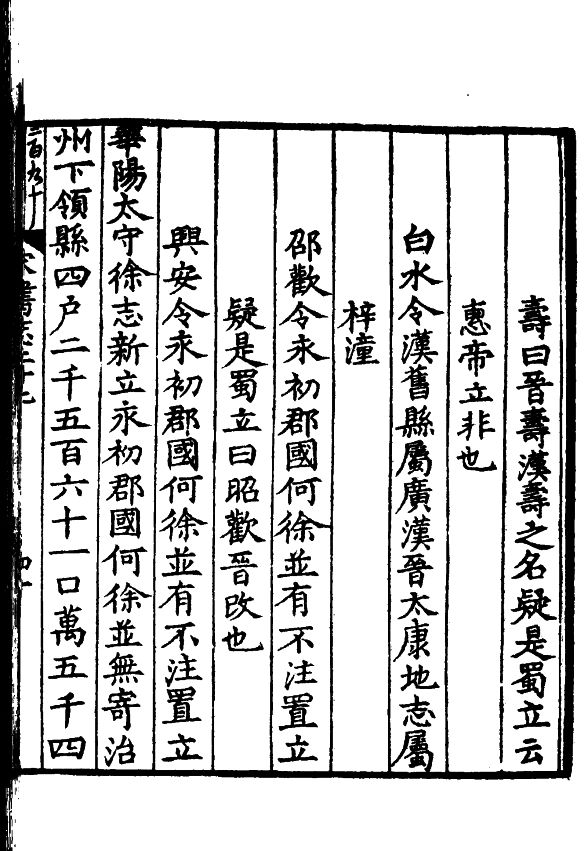 壽曰晉壽漢壽之名疑是蜀立云
惠帝立非也
白水令漢舊縣屬廣漢晉太康地志屬
梓潼
邵歡令永初郡國何徐並有不注置立
疑是蜀立曰昭歡晉改也
興安令永初郡國何徐並有不注置立
華陽太守徐志新立永初郡國何徐並無寄治
州下領縣四户二千五百六十一口萬五千四